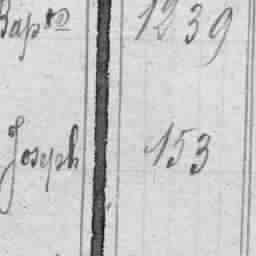 Bap^te 1239
Joseph 153